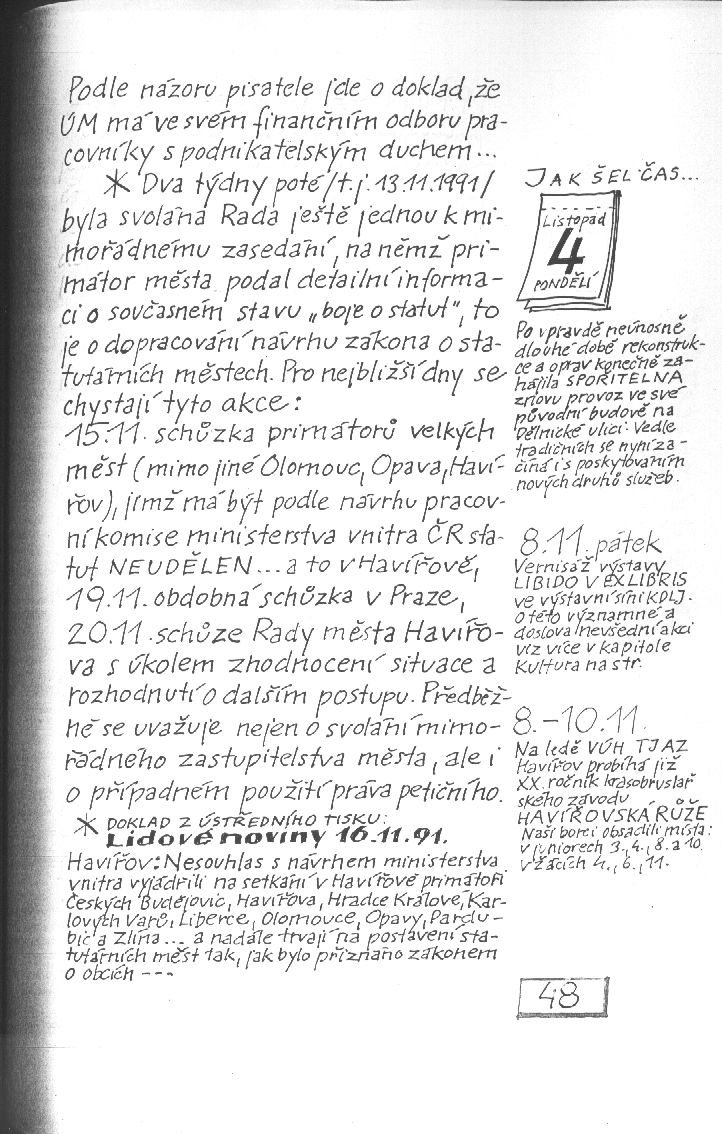 Podle názoru pisatele jde o doklad, že
ÚM má ve svém finančním odboru pra-
covníky s podnikatelským duchem...
* Dva týdny poté /t.j. 13.11.1991/
byla svolána Rada ještě jednou k mi-
mořádnému zasedání, na němž pri-
mátor města podal detailní informa-
ci o současném stavu „boje o statut“, to
je o dopracování návrhu zákona o sta-
tutárních městech. Pro nejbližší dny se
chystají tyto akce:
15.11. schůzka primátorů velkých
měst (mimo jiné Olomouc, Opava, Haví-
řov), jímž má být podle návrhu pracov-
ní komise ministerstva vnitra ČR sta-
tut NEUDĚLEN... a to v Havířově,
19.11. obdobná schůzka v Praze,
20.11. schůze Rady města Havířo-
va s úkolem zhodnocení situace a
rozhodnutí o dalším postupu. Předběž-
ně se uvažuje nejen o svolání mimo-
řádného zastupitelstva města, ale i
o případném použití práva petičního.
* DOKLAD Z ÚSTŘEDNÍHO TISKU:
Lidové noviny 16.11.91.
Havířov: Nesouhlas s návrhem ministerstva
vnitra vyjádřili na setkání v Havířově primátoři
Českých Budějovic, Havířova, Hradce Králové, Kar-
lových Varů, Liberce, Olomouce, Opavy, Pardu-
bic a Zlína... a nadále trvají na postavení sta-
tutárních měst tak, jak bylo přiznáno zákonem
o obcích ---
JAK ŠEL ČAS...
Listopad
4
PONDĚLÍ
Po vpravdě neúnosně
dlouhé době rekonstruk-
ce a oprav konečně za-
hájila SPOŘITELNA
znovu provoz ve své
původní budově na
Dělnické ulici. Vedle
tradičních se nyní za-
číná i s poskytováním
nových druhů služeb.
8.11. pátek
Vernisáž výstavy
LIBIDO V EXLIBRIS
ve výstavní síni KDLJ.
O této významné a
doslova nevšední akci
viz více v kapitole
Kultura na str.
8.-10.11.
Na ledě VÚH TJ AZ
Havířov probíhá již
XX. ročník krasobruslař
ského závodu
HAVÍŘOVSKÁ RŮŽE
Naši borci obsadili místa:
v juniorech 3., 4., 8. a 10.
v žácích 4., 6., 11.
48